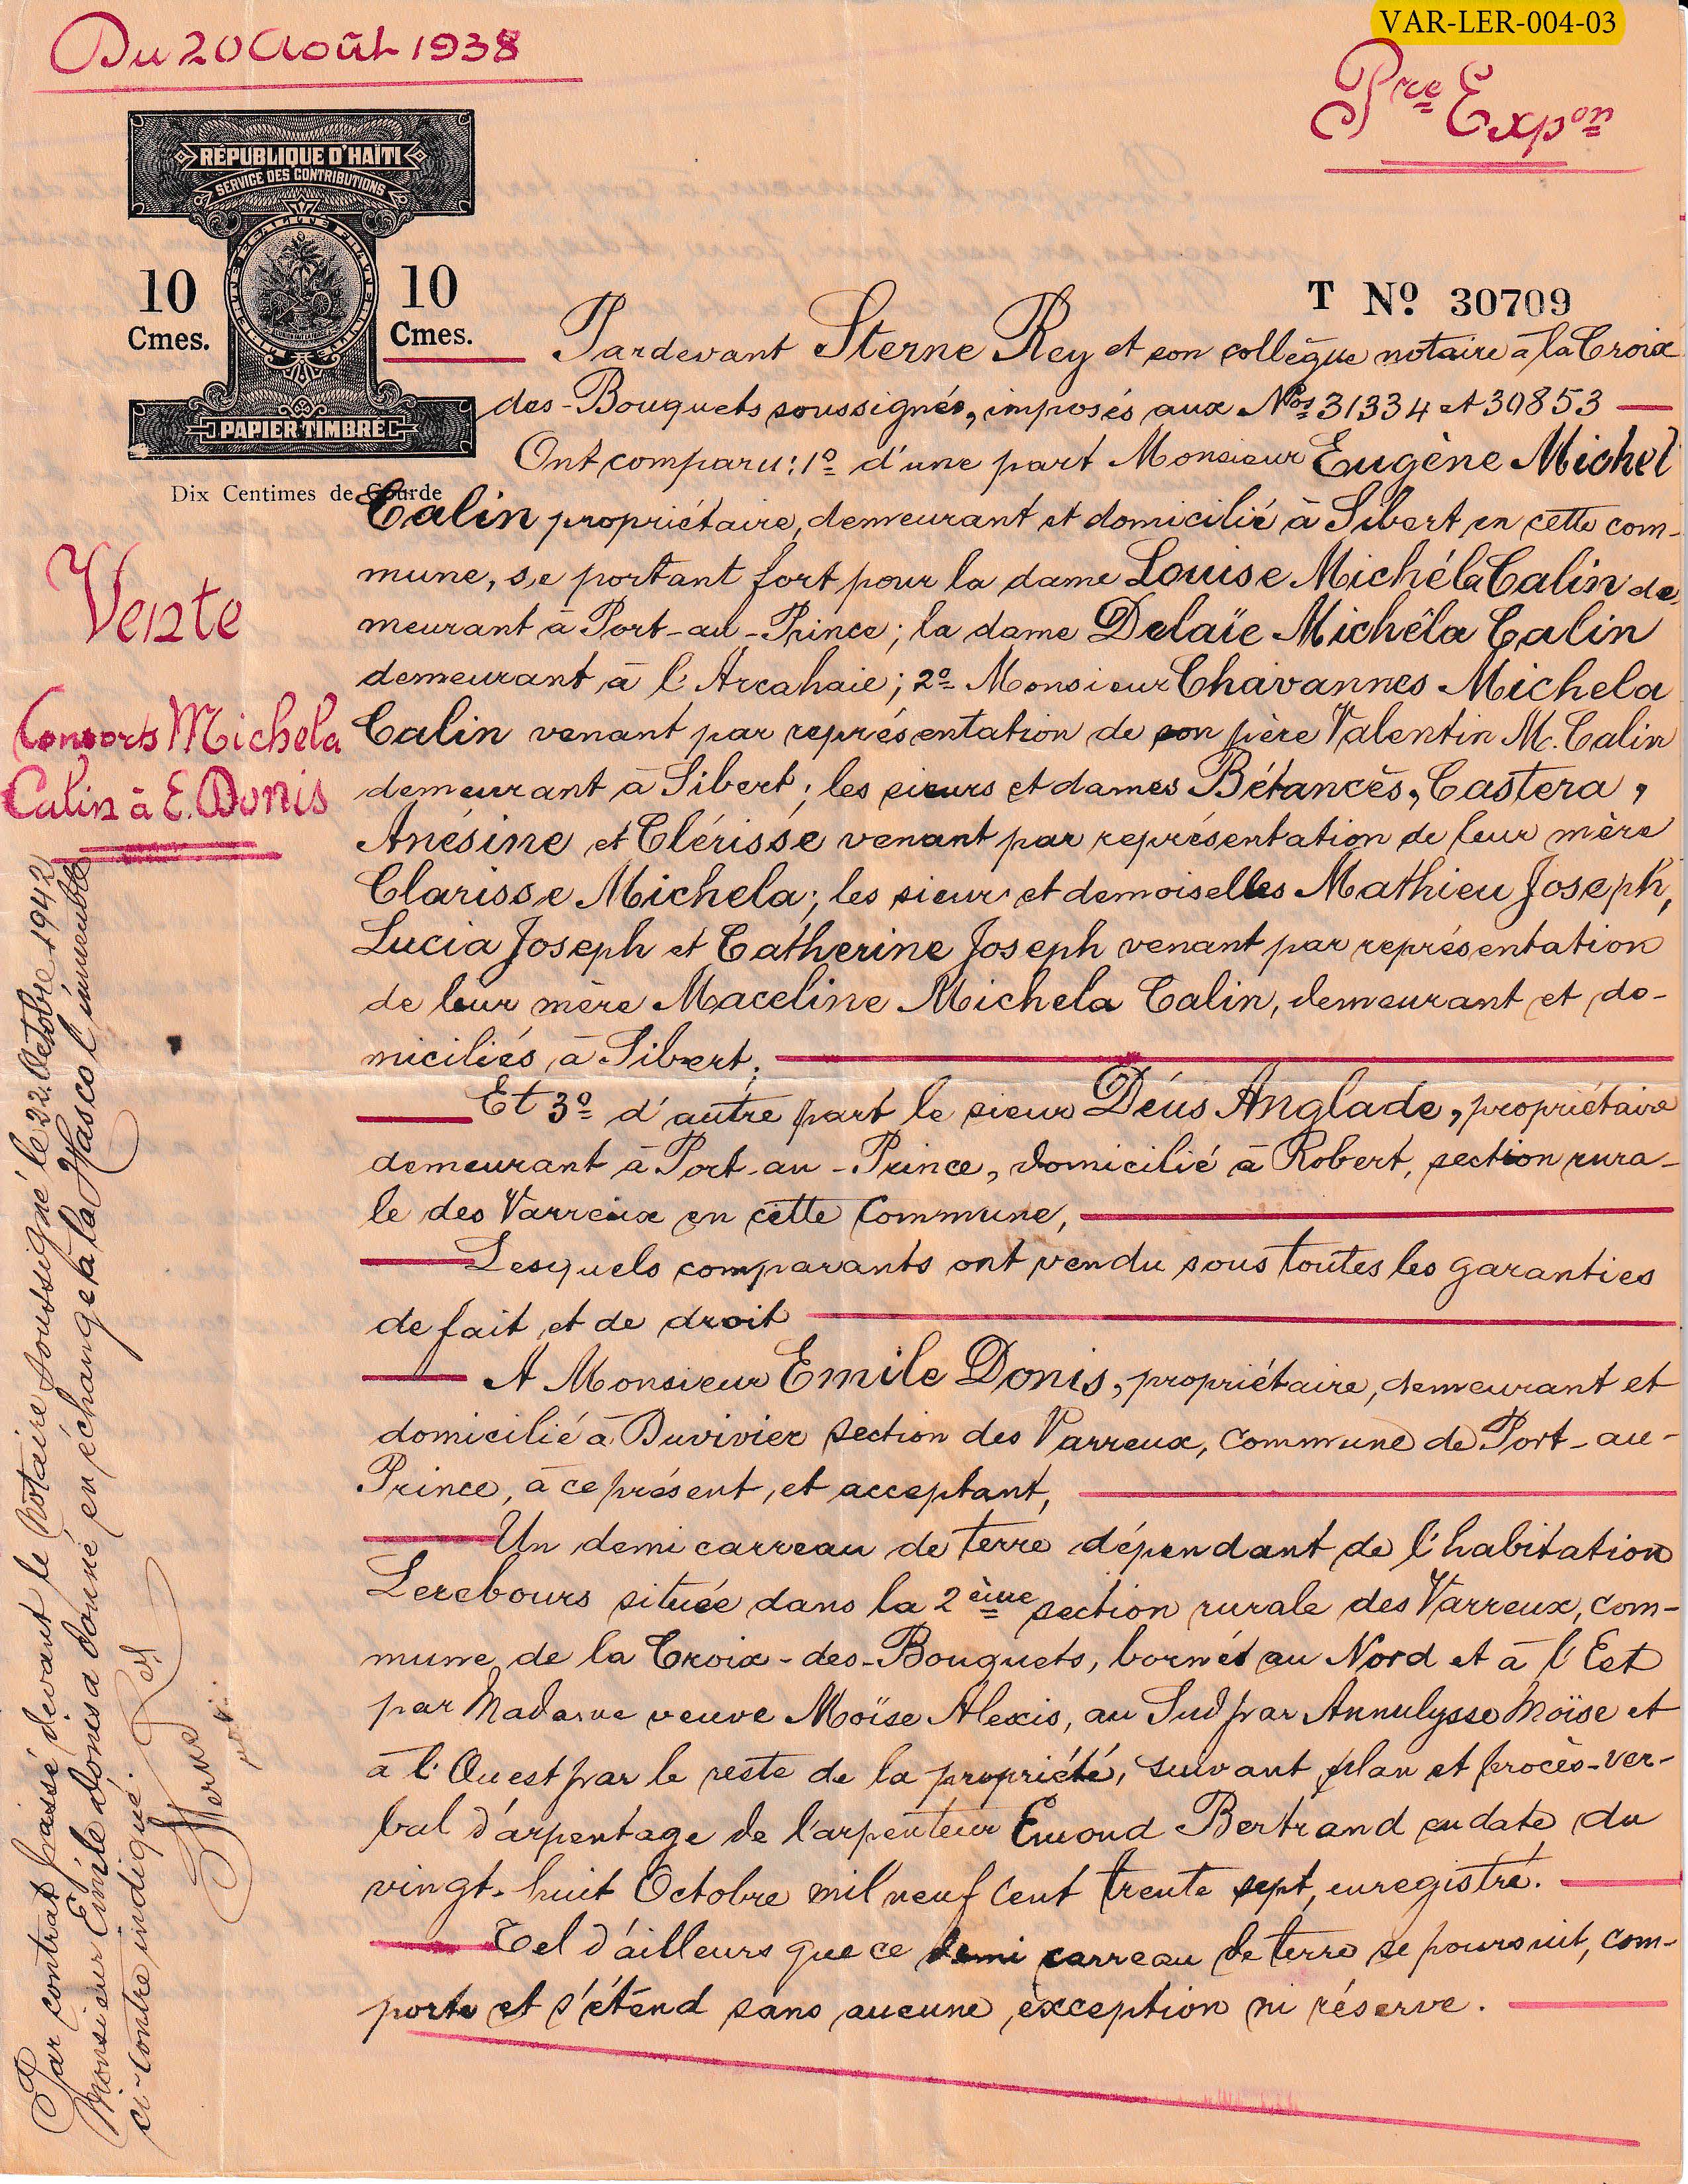 VAR-LER-004-03
Du 20 Août 1938
Pre Expon
RÉPUBLIQUE D'HAÏTI
SERVICE DES CONTRIBUTIONS
10 Cmes.
10 Cmes.
PAPIER TIMBRÉ
Dix Centimes de Gourde
T No 30709
Vente
Consorts Michela
Calin à E. Donis
Pardevant Sterne Rey et son collègue notaire à la Croix
des-Bouquets soussignés, imposés aux Nos 31334 et 30853
Ont comparu: 1o d'une part Monsieur Eugène Michel
Calin propriétaire, demeurant et domicilié à Sibert en cette com-
mune, se portant fort pour la dame Louise Michéla Calin de
meurant à Port-au-Prince; la dame Delaïe Michêla Calin
demeurant à l'Arcahaie; 2o Monsieur Chavannes Michela
Calin venant par représentation de son père Valentin M. Calin
demeurant à Sibert; les sieurs et dames Bétancès, Castera,
Anésine et Clérisse venant par représentation de leur mère
Clarisse Michela; les sieur et demoiselles Mathieu Joseph,
Lucia Joseph et Catherine Joseph venant par représentation
de leur mère Maceline Michela Calin, demeurant et do-
miciliés à Sibert.
Et 3o d'autre part le sieur Déus Anglade, propriétaire
demeurant à Port-au-Prince, domicilié à Robert, section rura-
le des Varreux en cette Commune,
Lesquels comparants ont vendu sous toutes les garanties
de fait et de droit
A Monsieur Emile Donis, propriétaire, demeurant et
domicilié à Duvivier section des Varreux, commune de Port-au-
Prince, à ce présent, et acceptant,
Un demi carreau de terre dépendant de l'habitation
Lerebours située dans la 2ème section rurale des Varreux, com-
mune de la Croix-des-Bouquets, bornés au Nord et à l'Est
par Madame veuve Moïse Alexis, au Sud par Annulysse Moïse et
à l'Ouest par le reste de la propriété, suivant plan et procès-ver-
bal d'arpentage de l'arpenteur Emond Bertrand en date du
vingt-huit Octobre mil neuf cent trente sept, enregistré.
Tel d'ailleurs que ce demi carreau de terre se poursuit, com-
porte et s'étend sans aucune exception ni réserve.
Par contrat passé devant le Notaire soussigné le 22 Octobre 1942
Monsieur Emile Donis a donné en échange à la Hasco l'immeuble
ci-contre indiqué.
Sterne Rey
not.